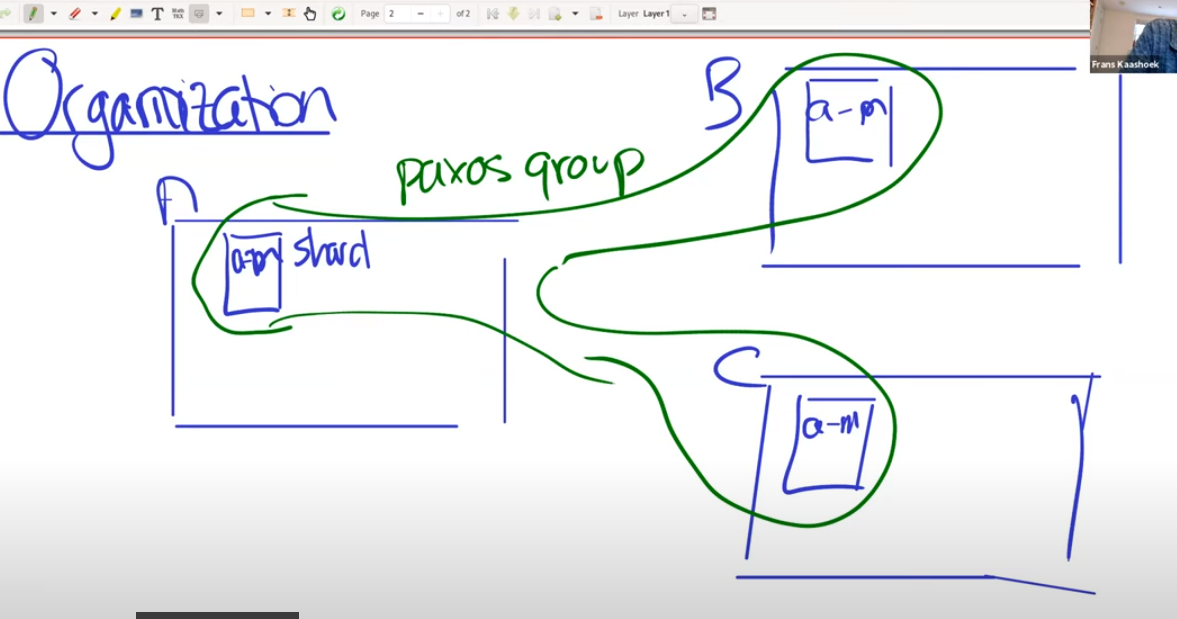 Page 2 of 2 Layer Layer 1
Frans Kaashoek
Organization
B
a-m
paxos group
A
a-m shard
C
a-m